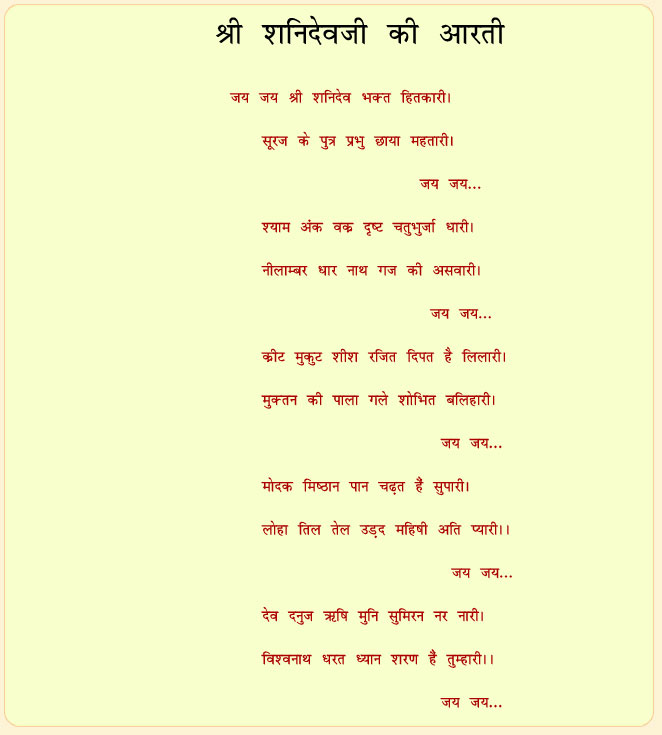 श्री शनिदेवजी की आरती
जय जय श्री शनिदेव भक्त हितकारी।
सूरज के पुत्र प्रभु छाया महतारी।
जय जय...
श्याम अंक वक्र दृष्ट चतुभुर्जा धारी।
नीलाम्बर धार नाथ गज की असवारी।
जय जय...
क्रीट मुकुट शीश रजित दिपत है लिलारी।
मुक्तन की पाला गले शोभित बलिहारी।
जय जय...
मोदक मिष्ठान पान चढ़त हैं सुपारी।
लोहा तिल तेल उड़द महिषी अति प्यारी।।
जय जय...
देव दनुज ऋषि मुनि सुमिरन नर नारी।
विश्वनाथ धरत ध्यान शरण हैं तुम्हारी।।
जय जय...